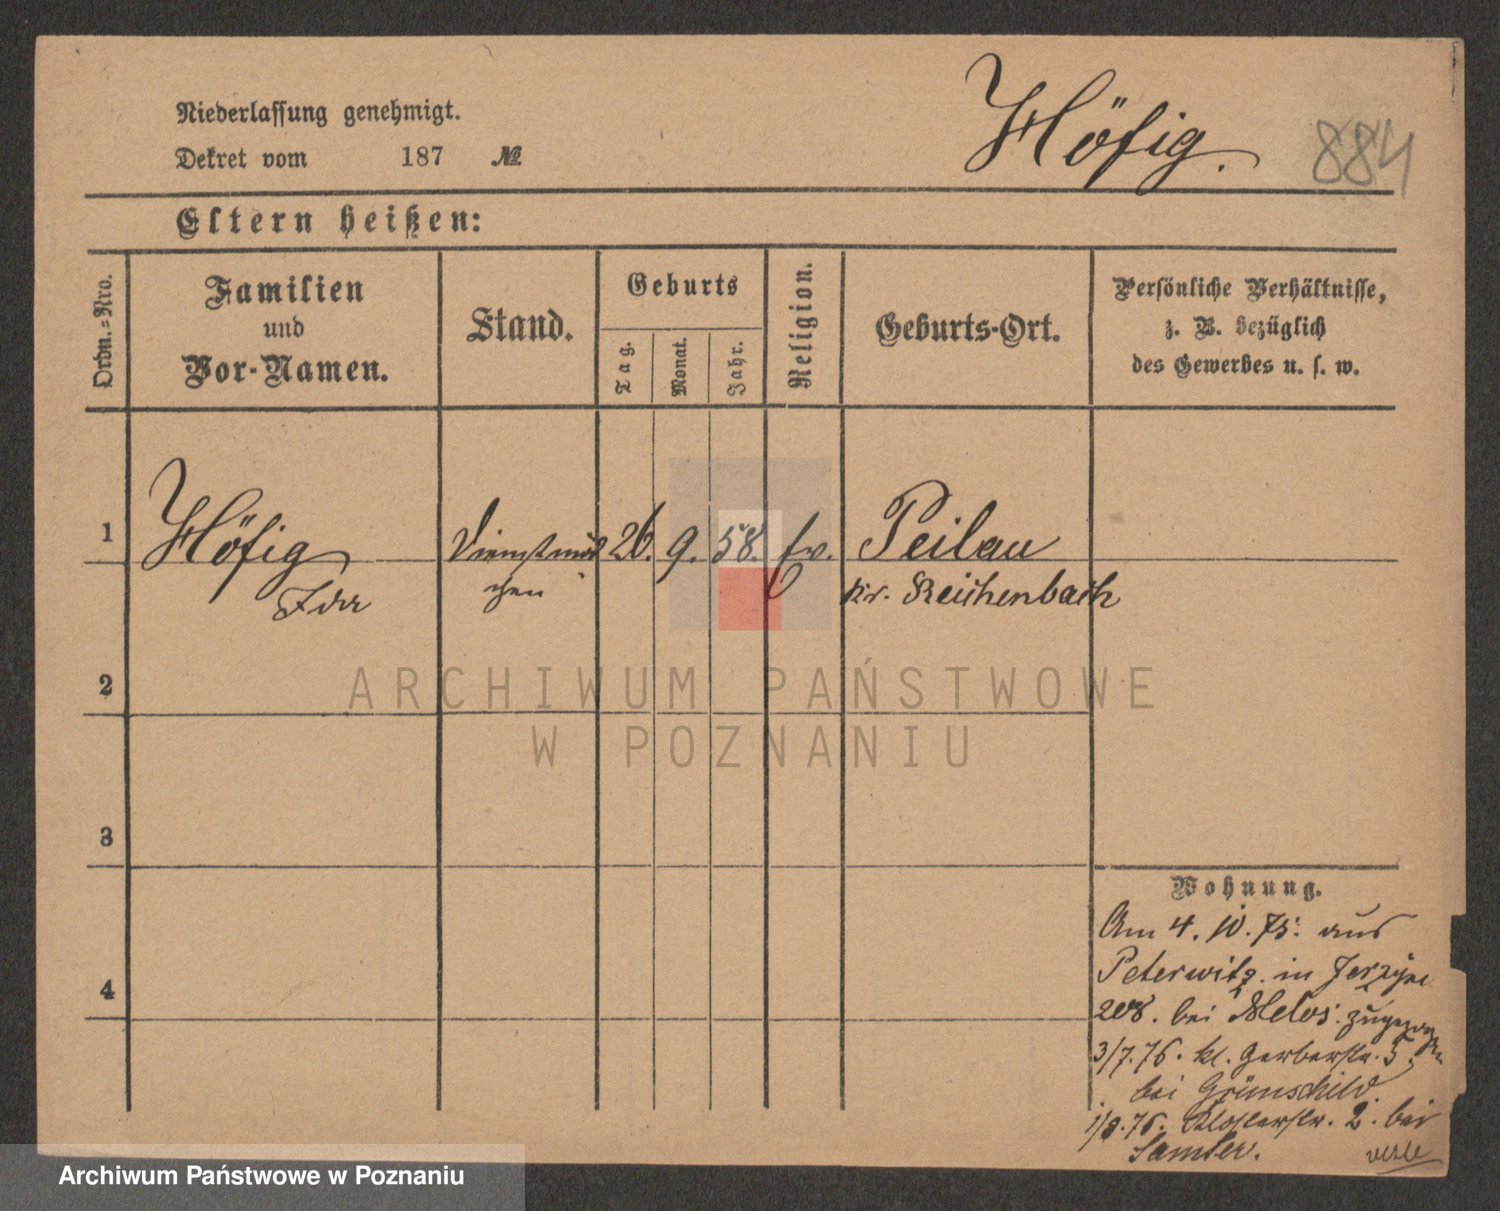 Niederlassung genehmigt.
Dekret vom 187 №
Höfig.
884
Eltern heißen:
Ordn.-Nro.
Familien
und
Vor-Namen.
Stand.
Geburts
Tag.
Monat.
Jahr.
Religion.
Geburts-Ort.
Persönliche Verhältnisse,
z. B. bezüglich
des Gewerbes u. s. w.
1 Höfig Dienstmäd 26. 9. 58. Peilau
Ida chen Kr. Reichenbach
2
ARCHIWUM PAŃSTWOWE
W POZNANIU
3
4
Wohnung.
Am 4. 10. 75. aus
Peterwitz. in
208. bei zugezogen
3/7.76. kl. Gerberstr. 5
bei Grünschild.
1/8.76. Klosterstr. 2. bei
Samter.
Archiwum Państwowe w Poznaniu